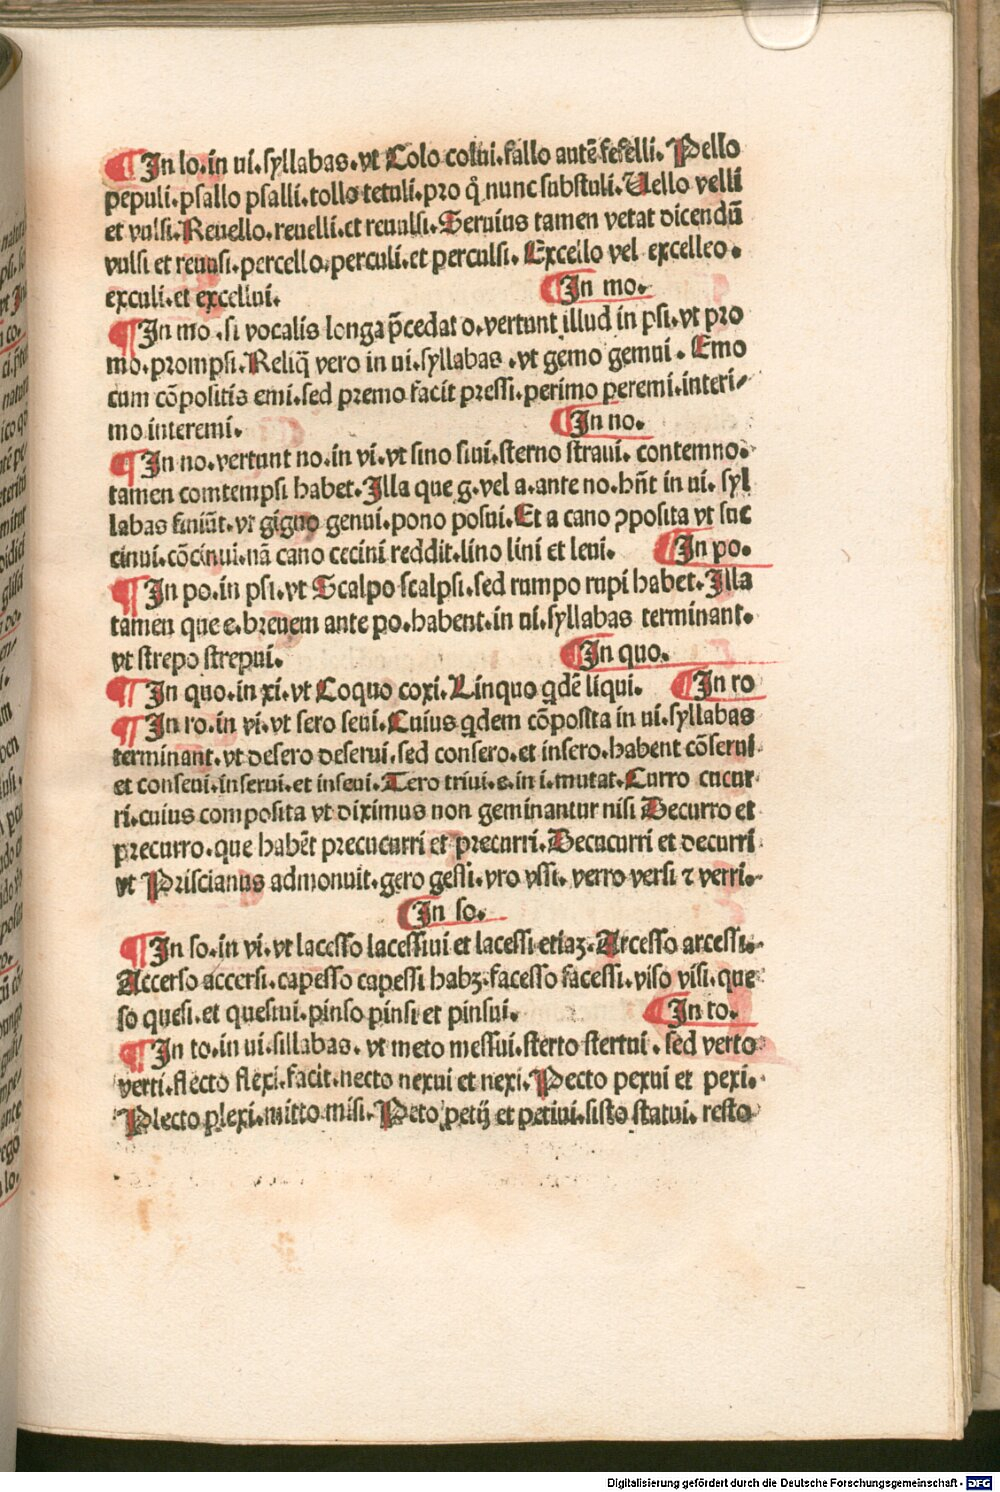 ¶ In lo.in ui.syllabas.vt Colo colui.fallo autē fefelli. Pello
pepuli.psallo psalli.tollo tetuli.pro q̊ nunc substuli. Uello velli
et vulsi.Reuello.reuelli.et reuulsi.Seruius tamen vetat dicendū
vulsi et reuulsi.percello.perculi.et perculsi. Excello vel excelleo.
exculi.et excellui. ¶ In mo.
¶ In mo .si vocalis longa p̄cedat o.vertunt illud in psi.vt pro
mo.prompsi.Reliq̄ vero in ui.syllabas .vt gemo gemui . Emo
cum cōpositis emi.sed premo facit pressi.perimo peremi.interi⸗
mo interemi. ¶ In no.
¶ In no.vertunt no.in vi.vt sino siui.sterno straui. contemno.
tamen comtempsi habet.Illa que g.vel a.ante no.hn̄t in ui. syl
labas finiūt.vt gigno genui.pono posui.Et a cano ꝯposita vt suc
cinui.cōcinui.nā cano cecini reddit.lino lini et leui. ¶ In po.
¶ In po.in psi.vt Scalpo scalpsi.sed rumpo rupi habet.Illa
tamen que e.breuem ante po.habent.in ui.syllabas terminant.
vt strepo strepui. ¶ In quo.
¶ In quo.in xi.vt Coquo coxi.Linquo qdē liqui. ¶ In ro
¶ In ro.in vi.vt sero seui.Cuius qdem cōposita in ui.syllabas
terminant.vt desero deserui.sed consero.et insero.habent cōserui
et conseui.inserui.et inseui.Tero triui.e.in i.mutat.Curro cucur
ri.cuius composita vt diximus non geminantur nisi Decurro et
precurro.que habēt precucurri et precurri.Decucurri et decurri
vt Priscianus admonuit.gero gessi.vro vssi. verro versi ⁊ verri.
¶ In so.
¶ In so.in vi.vt lacesso lacessiui et lacessi etiaꝫ.Arcesso arcessi.
Accerso accersi.capesso capessi habꝫ.facesso facessi.viso visi.que
so quesi.et quesiui.pinso pinsi et pinsui. ¶ In to.
¶ In to.in ui.sillabas. vt meto messui.sterto stertui . sed verto
verti.flecto flexi.facit.necto nexui et nexi.Pecto pexui et pexi.
Plecto plexi.mitto misi.Peto petij et petiui.sisto statui. resto
Digitalisierung gefördert durch die Deutsche Forschungsgemeinschaft - DFG